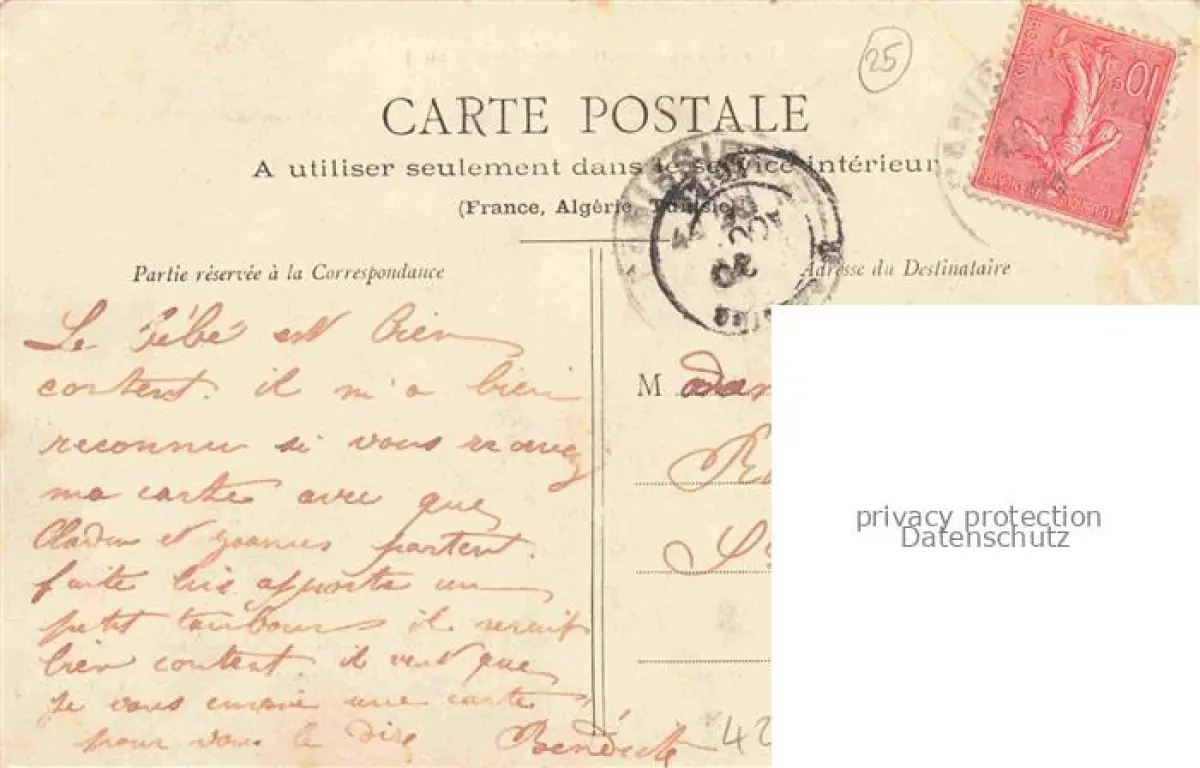 25
CARTE POSTALE
A utiliser seulement dans le service intérieur
(France, Algérie, Tunisie)
Partie réservée à la Correspondance
Adresse du Destinataire
10
Le Bébé est bien
content. il m'a bien
reconnu si vous
ma carte avre que
et Joannes partent.
faite lui apporte un
petit tambours il serait
bien content. il veut que
je vous envoie une carte
pour vous le dire
Bénédicte
M
42
privacy protection
Datenschutz